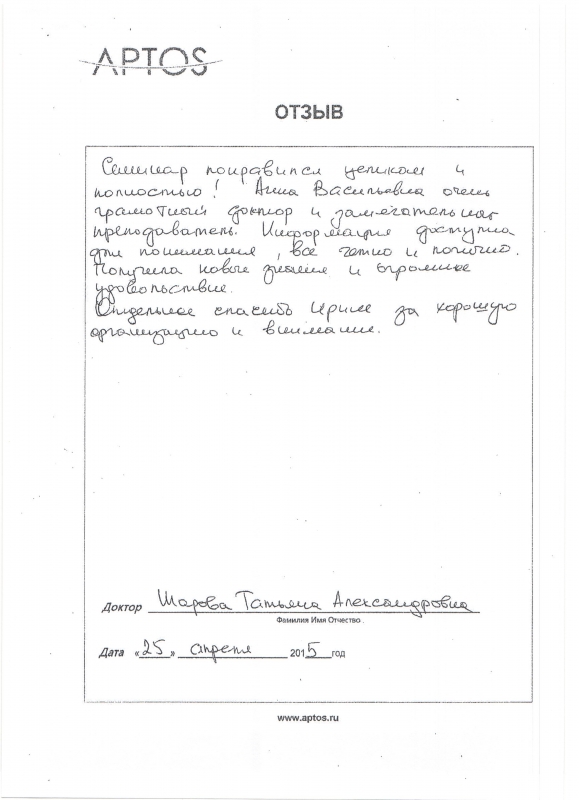 APTOS
ОТЗЫВ
Семинар понравился целиком и
полностью! Анна Васильевна очень
грамотный доктор и замечательная
преподаватель. Информация доступна
для понимания, все четко и логично.
Получила новые знания и огромное
удовольствие.
Отдельное спасибо Ирине за хорошую
организацию и внимание.
Доктор Шарова Татьяна Александровна
Фамилия Имя Отчество.
Дата «25» апреля 2015 год
www.aptos.ru